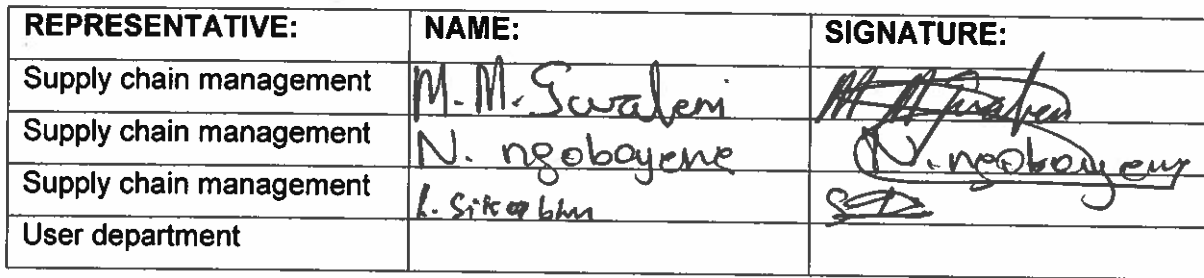 REPRESENTATIVE: NAME: SIGNATURE:
Supply chain management M. M. Gwaleni
Supply chain management N. ngoboyene N. ngoboyene
Supply chain management L.
User department